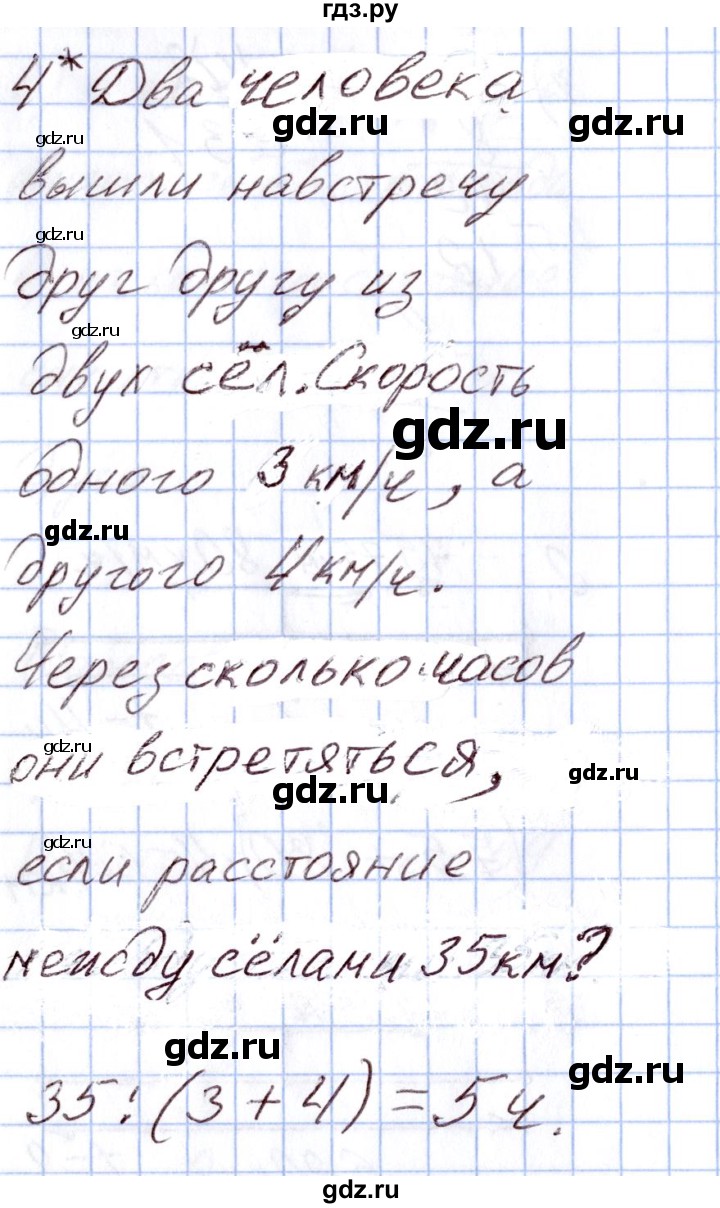 гдз.ру
4* Два человека
gdz.ru
gdz.ru
gdz.ru
вышли навстречу
gdz.ru
друг другу из
gdz.ru
двух сёл. Скорость
gdz.ru
одного 3 км/ч, а
gdz.ru
другого 4 км/ч.
Через сколько часов
gdz.ru
они встретяться,
gdz.ru
gdz.ru
gdz.ru
если расстояние
между сёлами 35 км?
gdz.ru
gdz.ru
35:(3+4)=5 ч.
gdz.ru